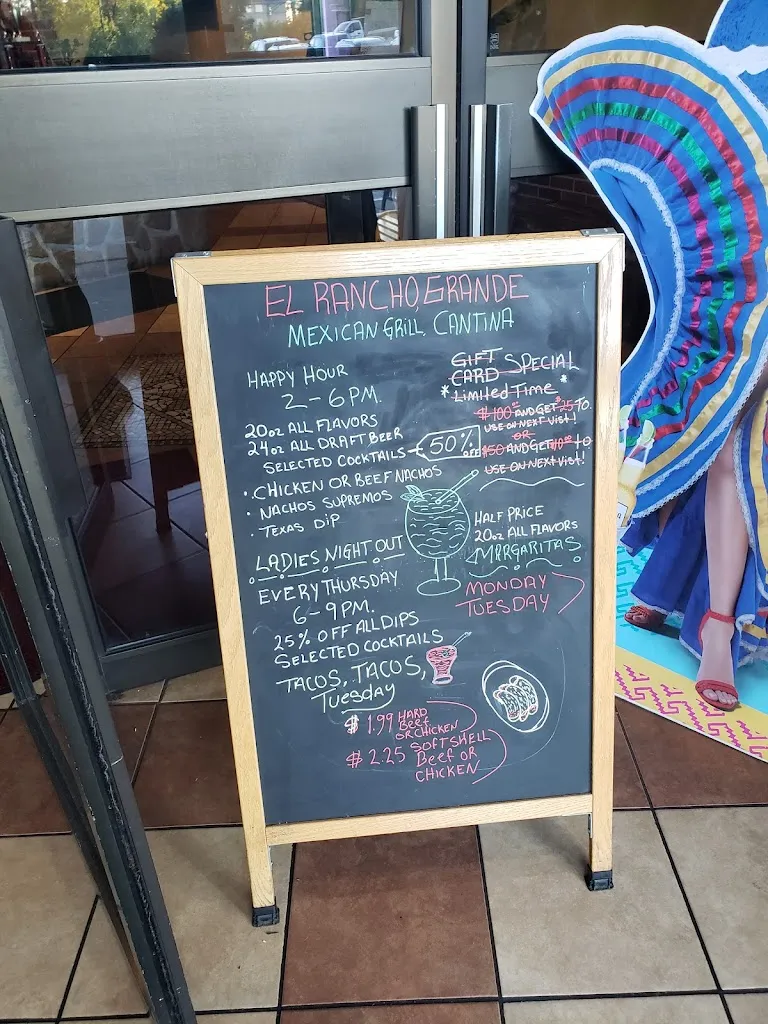 EL RANCHO GRANDE
MEXICAN GRILL CANTINA
HAPPY HOUR
2-6 PM.
20oz ALL FLAVORS
24oz ALL DRAFT BEER
SELECTED COCKTAILS
50% OFF
• CHICKEN OR BEEF NACHOS
• NACHOS SUPREMOS
• TEXAS DIP
LADIES NIGHT OUT
EVERY THURSDAY
6-9 PM.
25% OFF ALL DIPS
SELECTED COCKTAILS
TACOS, TACOS,
Tuesday
$1.99 HARD
Beef
OR CHICKEN
$2.25 SOFTSHELL
Beef OR
CHICKEN
GIFT
CARD SPECIAL
* Limited Time *
$100 AND GET $25 TO
USE ON NEXT VISIT!
OR
$50 AND GET $10 to
USE ON NEXT VISIT!
HALF PRICE
20oz ALL FLAVORS
MARGARITAS
MONDAY
TUESDAY